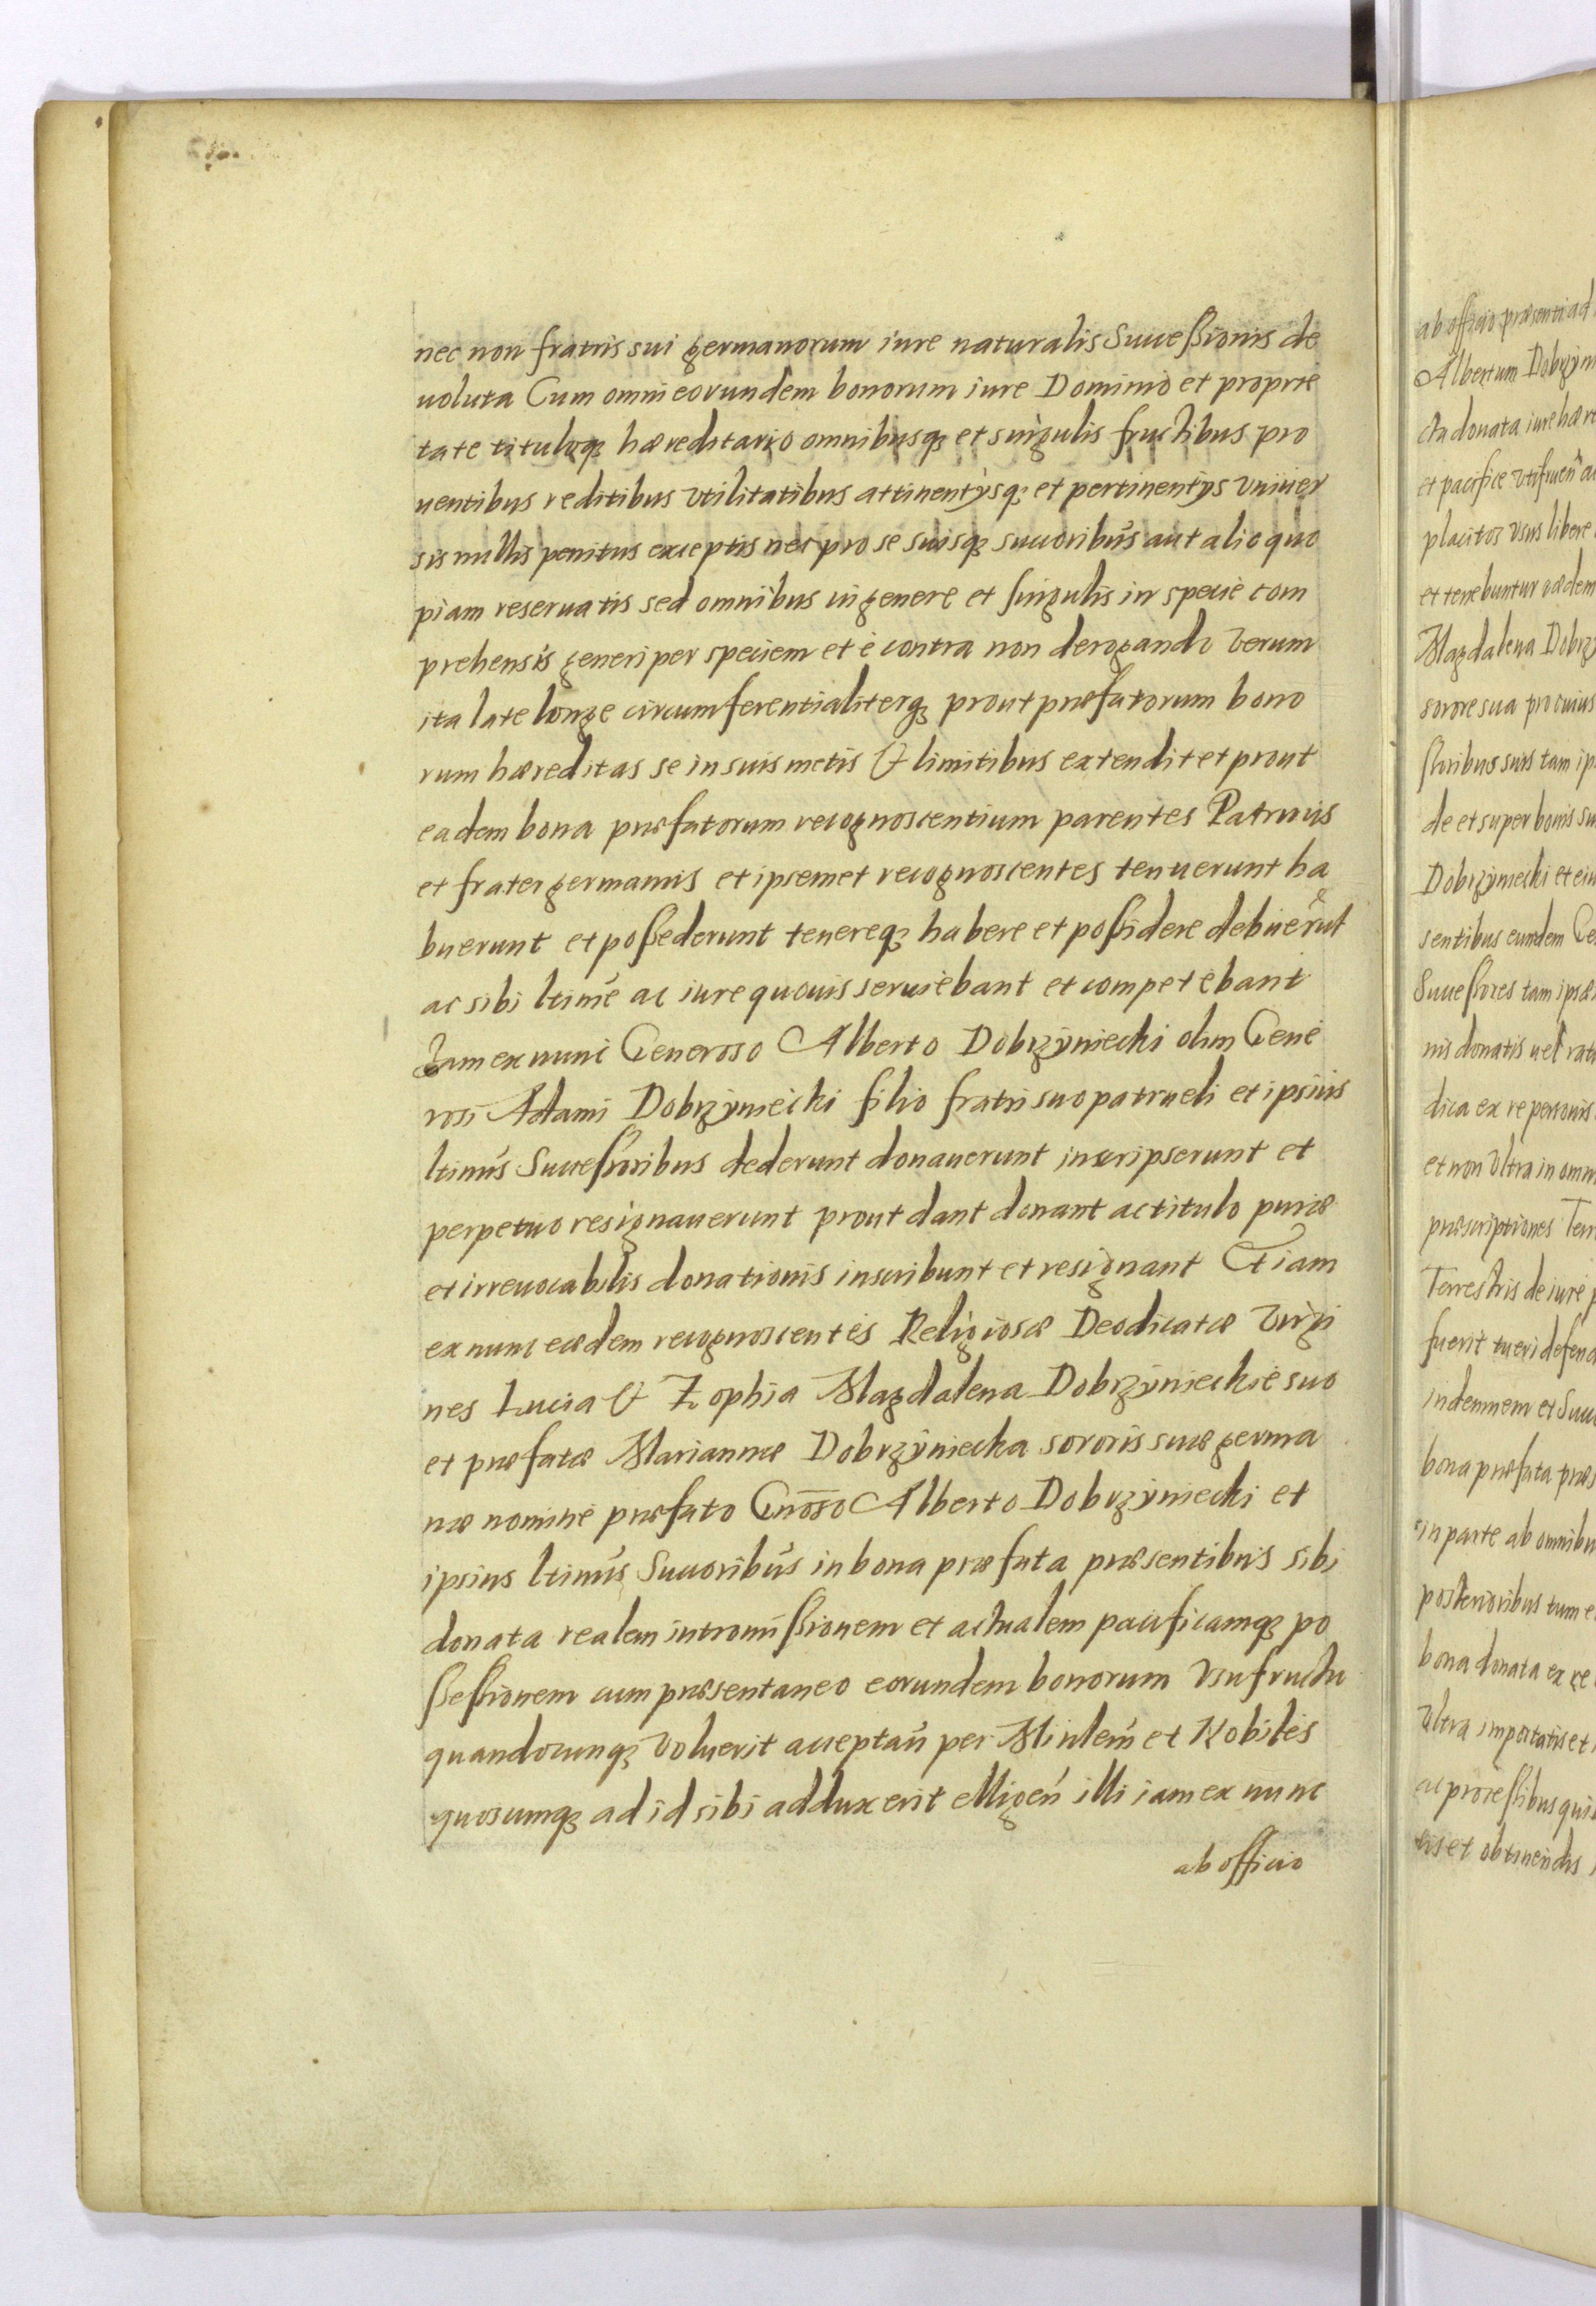 nec non fratris sui germanorum iure naturalis Successionis de
uoluta Cum omni eorundem bonorum iure Dominio et proprie
tate tituloq hæreditario omnibusq et singulis fructibus pro
uentibus reditibus vtilitatibus attinentÿsq et pertinentÿs vniuer
sis nullis penitus exceptis nec pro se suisq succoribus aut alio quo
piam reseruatis sed omnibus in genere et singulis in specie com
prehensis generi per speciem et e contra non derogando verum
ita late longe circumferentialiterq prout præfatorum bono
rum hæreditas se in suis metis & limitibus extendit et prout
eadem bona præfatorum recognoscentium parentes Patruus
et frater germanus et ipsemet recognoscentes tenuerunt ha
buerunt et possederunt tenereq habere et possidere debuerūt
ac sibi ltime ac iure quouis seruiebant et competebant
Jam ex nunc Generoso Alberto Dobrzÿniecki olim Gene
rosi Adami Dobrzÿniecki filio fratri suo patrueli et ipsius
ltimis Successoribus dederunt donauerunt inscripserunt et
perpetuo resignauerunt prout dant donant ac titulo puræ
et irreuocabilis donationis inscribunt et resignant Etiam
ex nunc eædem recognoscentes Religiosæ Deodicatæ Virgi
nes Lucia & Zophia Magdalena Dobrzÿnieckie suo
et præfatæ Mariannæ Dobrzÿniecka sororis suæ germa
næ nomine præfato Gnoso Alberto Dobrzÿniecki et
ipsius ltimis Succoribus in bona præfata præsentibus sibi
donata realem intromissionem et actualem pacificamq po
ssessionem cum præsentaneo eorundem bonorum vsufructu
quandocunq voluerit acceptan per Minlem et Nobiles
quoscumq ad id sibi adduxerit elligen illi iam ex nunc
ab officio
ab officio præsenti ad
Albertum Dobrzÿn
cta donata iure hære
et pacifice vtifruen̄ ac
placitos vsus libere
et tenebuntur eædem
Magdalena Dobrzÿ
sorore sua pro cuius
ssoribus suis tam ip
de et super bonis su
Dobrzÿniecki et eiu
sentibus eundem Ge
Successores tam ipsæ
nis donatis uel rati
dica ex re personis
et non vltra in omni
præscriptiones Terr
Terrestris de iure p
fuerit tueri defend
indemnem et Succ
bona præfata præs
in parte ab omnibu
posterioribus tum e
bona donata ex re
vltra impetatis et
ac processibus quis
tis et obtinendis